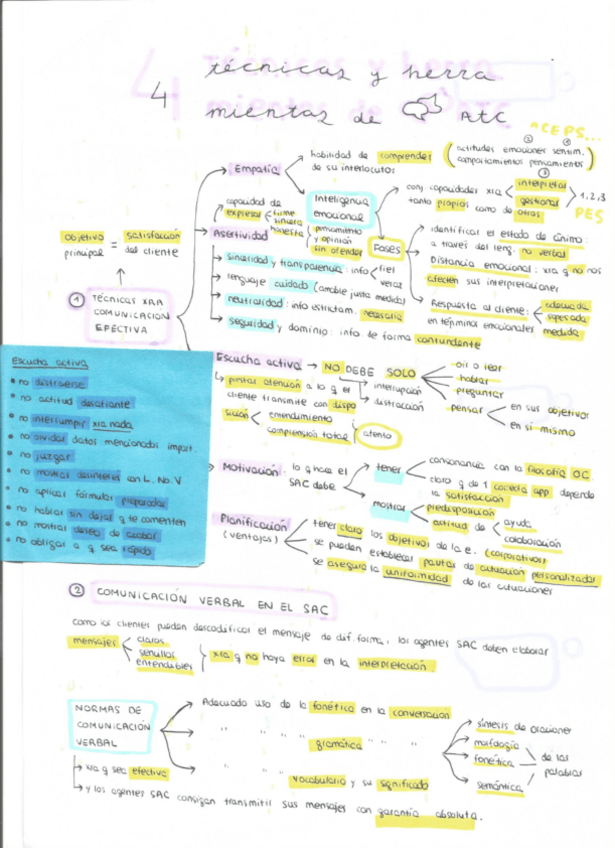 4 técnicas y herra
mientas de ATC
"CEPS...
Empatía
habilidad de comprender
de su interlocutor
actitudes emociones sentim.
comportamientos pensamientos
② ① ③
Inteligencia
emocional
con capacidades xra
interpretar
gestionar
tanto propios como de otros
1, 2, 3
PES
capacidad de
expresar
firme
sincera
honesta
pensamiento
y opinión
sin ofender
Asertividad
objetivo = satisfacción
principal del cliente
Fases
identificar el estado de ánimo:
a través del leng. no verbal
Distancia emocional: xra q no nos
afecten sus interpretaciones
Respuesta al cliente:
en términos emocionales
adecuada
sopesada
medida
sinceridad y transparencia: info
fiel
veraz
lenguaje cuidado (amable justa medida)
neutralidad: info estrictam. necesaria
seguridad y dominio: info de forma contundente
① TÉCNICAS XRA
COMUNICACIÓN
EFECTIVA
Escucha activa → NO DEBE SOLO
oir o leer
hablar
preguntar
pensar
en sus objetivos
en si mismo
interrupción
distracción
prestar atención a lo q el
cliente transmite con dispo
sición
entendimiento
comprensión total
atento
Escucha activa
• no distraerse
• no actitud desafiante
• no interrumpir xra nada
• no olvidar datos mencionados import.
• no juzgar
• no mostrar desinterés con L. No. V
• no aplicar fórmulas preparadas
• no hablar sin dejar q te comenten
• no mostrar deseo de acabar
• no obligar a q sea rápido
Motivación: lo q hace el
SAC debe
tener
consonancia con la filosofía OC.
claro q de 1 correcta app. depende
la satisfacción
mostrar
predisposición
actitud de
ayuda
colaboración
Planificación
(ventajas)
tener claro los objetivos de la e. (corporativos)
se pueden establecer pautas de actuación personalizadas
se asegura la uniformidad de las actuaciones
② COMUNICACIÓN VERBAL EN EL SAC
como los clientes pueden descodificar el mensaje de dif. forma, los agentes SAC deben elaborar
mensajes
claros
sencillos
entendables
xra q no haya error en la interpretación.
NORMAS DE
COMUNICACIÓN
VERBAL
Adecuado uso de la fonética en la conversación
" " " gramática " " "
" " " vocabulario y su significado
síntesis de oraciones
morfología
fonética
semántica
de las
palabras
→ xra q sea efectiva
→ y los agentes SAC consigan transmitir sus mensajes con garantía absoluta.